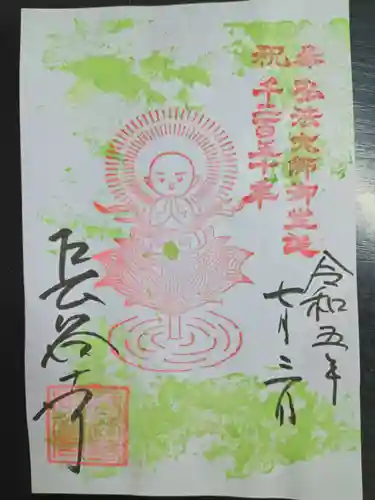 奉祝
弘法大師御生誕
千二百五十年
令和五年
七月三日
長谷寺